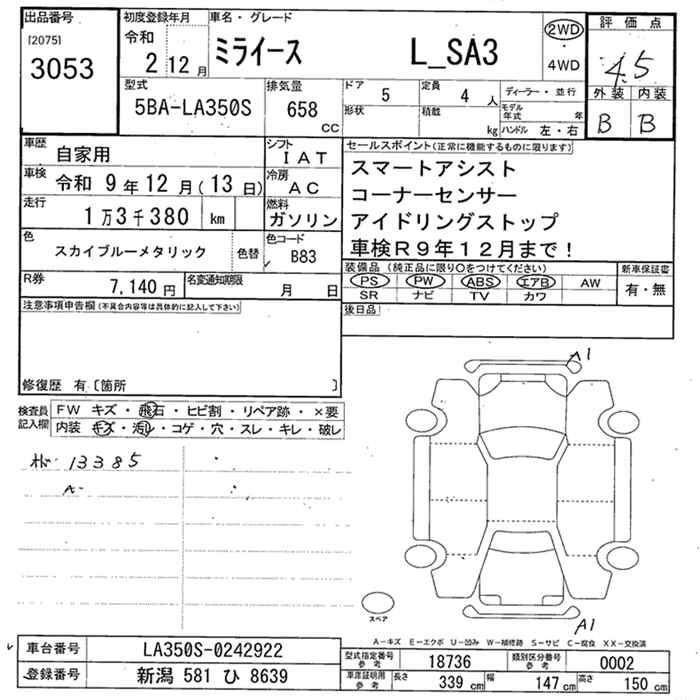 出品番号
[2075]
3053
初度登録年月
令和
2 12 月
車名・グレード
ミライース L_SA3
2WD
・
4WD
評価点
4.5
外装 内装
B B
型式
5BA-LA350S
排気量
658
cc
ドア 5
形状
定員 4 人
積載
kg
ディーラー・並行
モデル年式 年
ハンドル 左・右
車歴 自家用
車検 令和 9 年 12 月(13 日)
走行 1 万 3 千 380 km
色 スカイブルーメタリック 色替
R券 7,140 円
名変通知期限 月 日
シフト
IAT
冷房
AC
燃料
ガソリン
色コード
B83
セールスポイント(正常に機能するものに限ります)
スマートアシスト
コーナーセンサー
アイドリングストップ
車検R9年12月まで!
装備品(純正品に限り〇をつけてください)
PS PW ABS エアB AW
SR ナビ TV カワ
新車保証書
有・無
後日品
注意事項申告欄(不具合内容等は具体的に記入して下さい)
修復歴 有〔箇所 〕
検査員
記入欄
FW キズ・飛石・ヒビ割・リペア跡・×要
内装 キズ・汚レ・コゲ・穴・スレ・キレ・破レ
13385
A-
A1
A1
スペア
A-キズ E-エクボ U-凹み W-補修跡 S-サビ C-腐食 XX-交換済
車台番号 LA350S-0242922
登録番号 新潟 581 ひ 8639
型式指定番号
参考
18736
類別区分番号
参考
0002
車庫証明用
参考
長さ 339 cm 幅 147 cm 高さ 150 cm